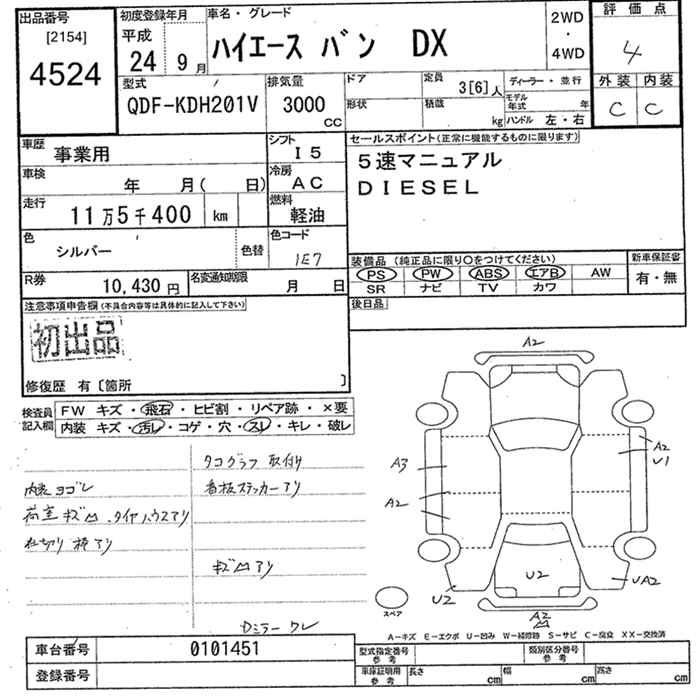 出品番号
[2154]
4524
初度登録年月
平成
24 9月
車名・グレード
ハイエース バン DX
2WD
・
4WD
評価点
4
外装 内装
C C
型式
QDF-KDH201V
排気量
3000
CC
ドア
形状
定員
3[6]人
積載
kg
ディーラー・並行
モデル年式 年
ハンドル 左・右
車歴
事業用
シフト
I5
車検
年 月( 日)
冷房
AC
走行
11万5千400 km
燃料
軽油
色
シルバー
色替
色コード
1E7
R券
10,430円
名変通知期限
月 日
セールスポイント(正常に機能するものに限ります)
5速マニュアル
DIESEL
装備品 (純正品に限り○をつけてください)
PS PW ABS エアB AW
SR ナビ TV カワ
新車保証書
有・無
後日品
注意事項申告欄(不具合内容等は具体的に記入して下さい)
初出品
修復歴 有〔箇所 〕
検査員
記入欄
FW キズ・飛石・ヒビ割・リペア跡・×要
内装 キズ・汚レ・コゲ・穴・スレ・キレ・破レ
タコグラフ 取付け
内装ヨゴレ
看板ステッカーアリ
荷室キズ凹、タイヤハウスアリ
仕切り棒アリ
キズ凹アリ
Dミラーワレ
A2
A3
A2
A2
U1
U2
U2
UA2
A2
凹
スペア
A-キズ E-エクボ U-凹み W-補修跡 S-サビ C-腐食 XX-交換済
車台番号
0101451
登録番号
型式指定番号
参考
類別区分番号
参考
車庫証明用
参考
長さ cm
幅 cm
高さ cm